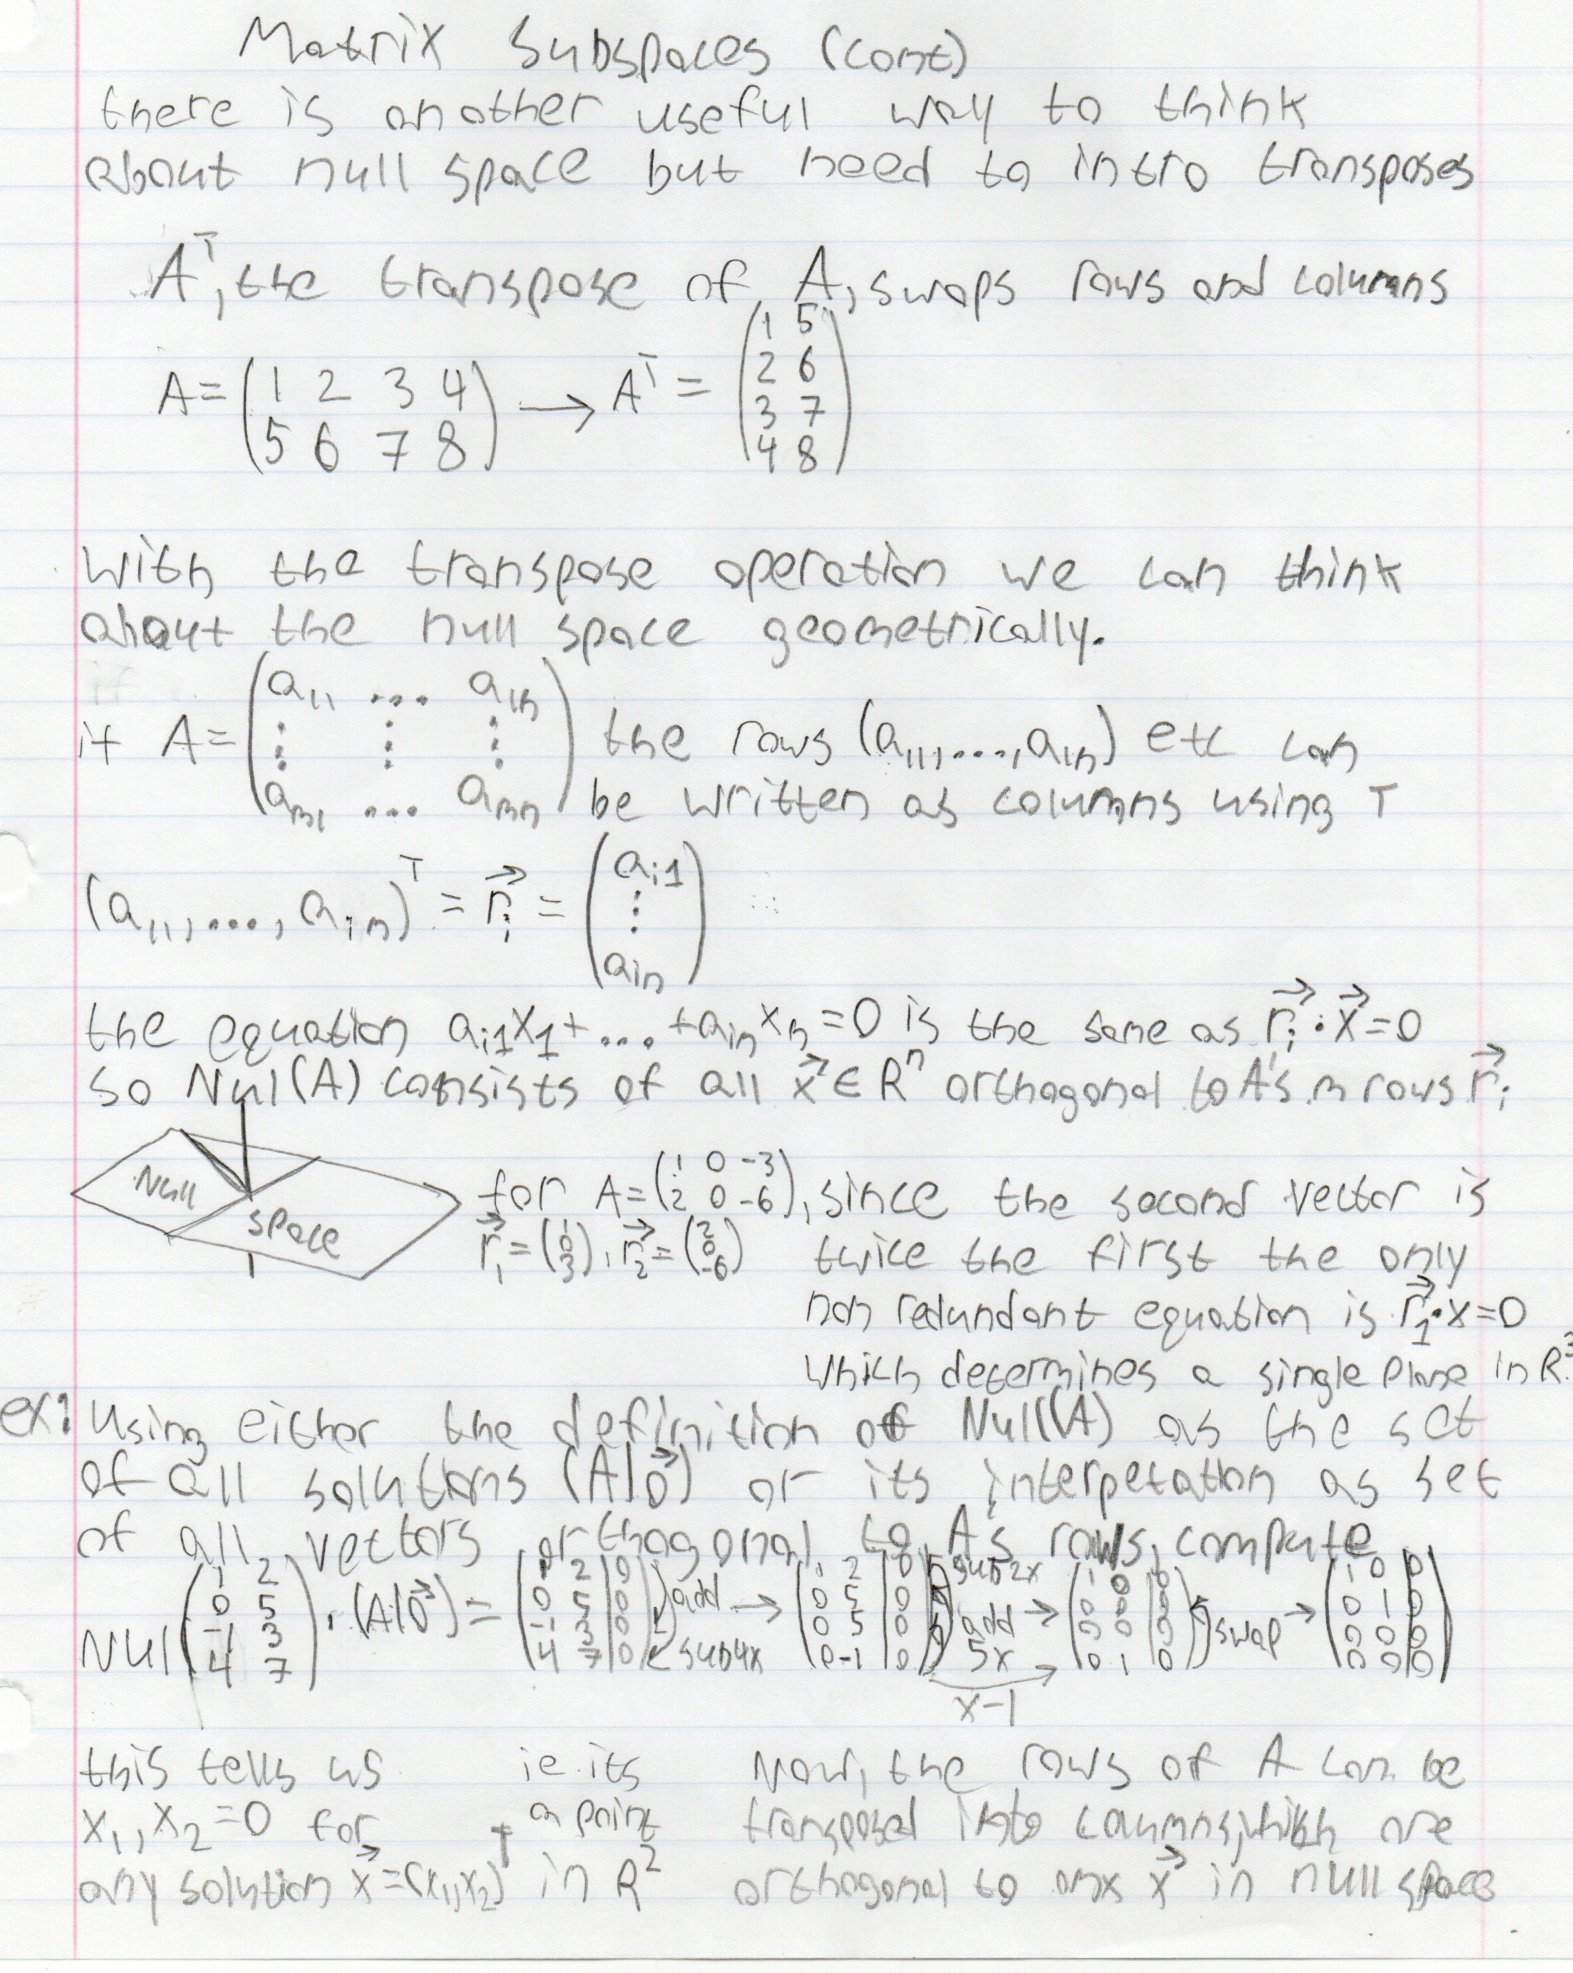 Matrix Subspaces (cont)
there is another useful way to think
about null space but need to intro transposes
Aᵀ, the transpose of A, swaps rows and columns
A = (1 2 3 4; 5 6 7 8) → Aᵀ = (1 5; 2 6; 3 7; 4 8)
With the transpose operation we can think
about the null space geometrically.
if A = (a₁₁ ... a₁ₙ; ⋮ ⋮ ⋮; aₘ₁ ... aₘₙ) the rows (a₁₁,...,a₁ₙ) etc can
be written as columns using T
(a₁₁,...,aᵢₙ)ᵀ = r⃗ᵢ = (aᵢ₁; ⋮; aᵢₙ)
the equation aᵢ₁x₁+...+aᵢₙxₙ=0 is the same as r⃗ᵢ·x⃗=0
so Nul(A) consists of all x⃗∈Rⁿ orthogonal to A's m rows r⃗ᵢ
Null space
for A=(1 0 -3; 2 0 -6), since the second vector is
r⃗₁=(1; 0; 3), r⃗₂=(2; 0; -6) twice the first the only
non redundant equation is r⃗₁·x=0
which determines a single plane in R³.
ex: Using either the definition of Null(A) as the set
of all solutions (A|0⃗) or its interpetation as set
of all vectors orthogonal to A's rows, compute
Nul(1 2; 0 5; -1 3; 4 7). (A|0⃗) = (1 2|0; 0 5|0; -1 3|0; 4 7|0) add sub4x → (1 2|0; 0 5|0; 0 5|0; 0 -1|0) sub2x add 5x x-1 → (1 0|0; 0 0|0; 0 0|0; 0 1|0) swap → (1 0|0; 0 1|0; 0 0|0; 0 0|0)
this tells us
x₁, x₂=0 for
any solution x⃗=(x₁,x₂)ᵀ
ie its
a point
in R²
Now, the rows of A can be
transposed into coumns, which are
orthogonal to any x⃗ in null space